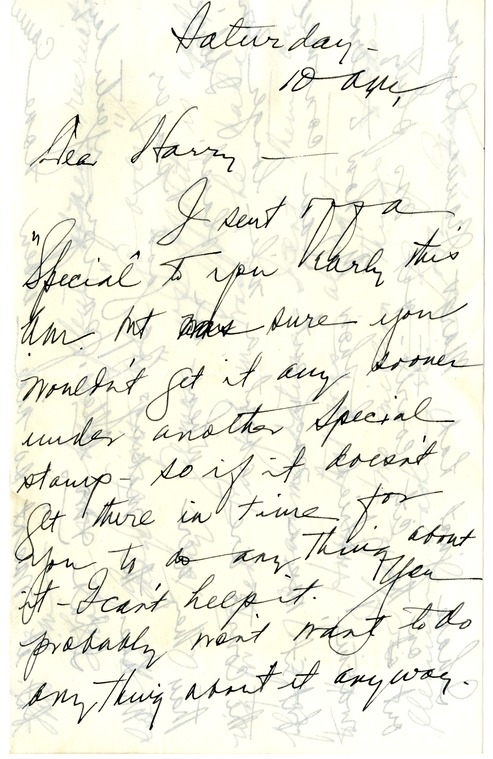 Saturday -
10 am,
Dear Harry —
I sent off a
"Special" to you early this
am. but was sure you
wouldn't get it any sooner
under another special
stamp - so if it doesn't
get there in time for
you to do any thing about
it - I can't help it. You
probably won't want to do
any thing about it anyway.